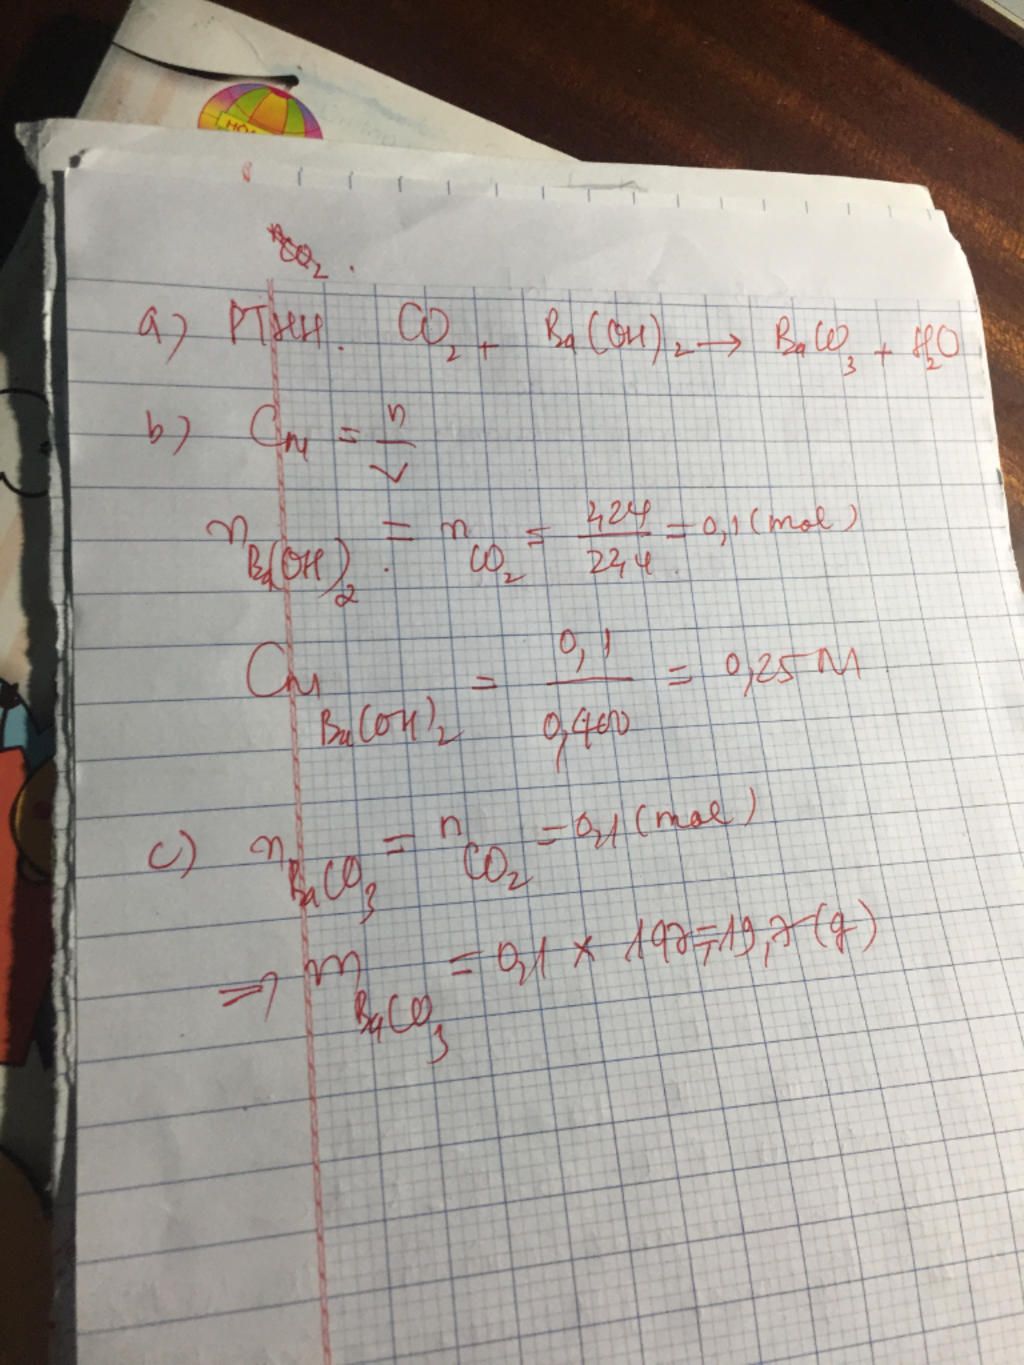 CO₂ .
a) PTHH. CO₂ + Ba(OH)₂ → BaCO₃ + H₂O
b) C_M = n/V
n Ba(OH)₂ = n CO₂ = 2,24/22,4 = 0,1 (mol)
C_M Ba(OH)₂ = 0,1/0,400 = 0,25 M
c) n BaCO₃ = n CO₂ = 0,1 (mol)
=> m BaCO₃ = 0,1 × 197 = 19,7 (g)